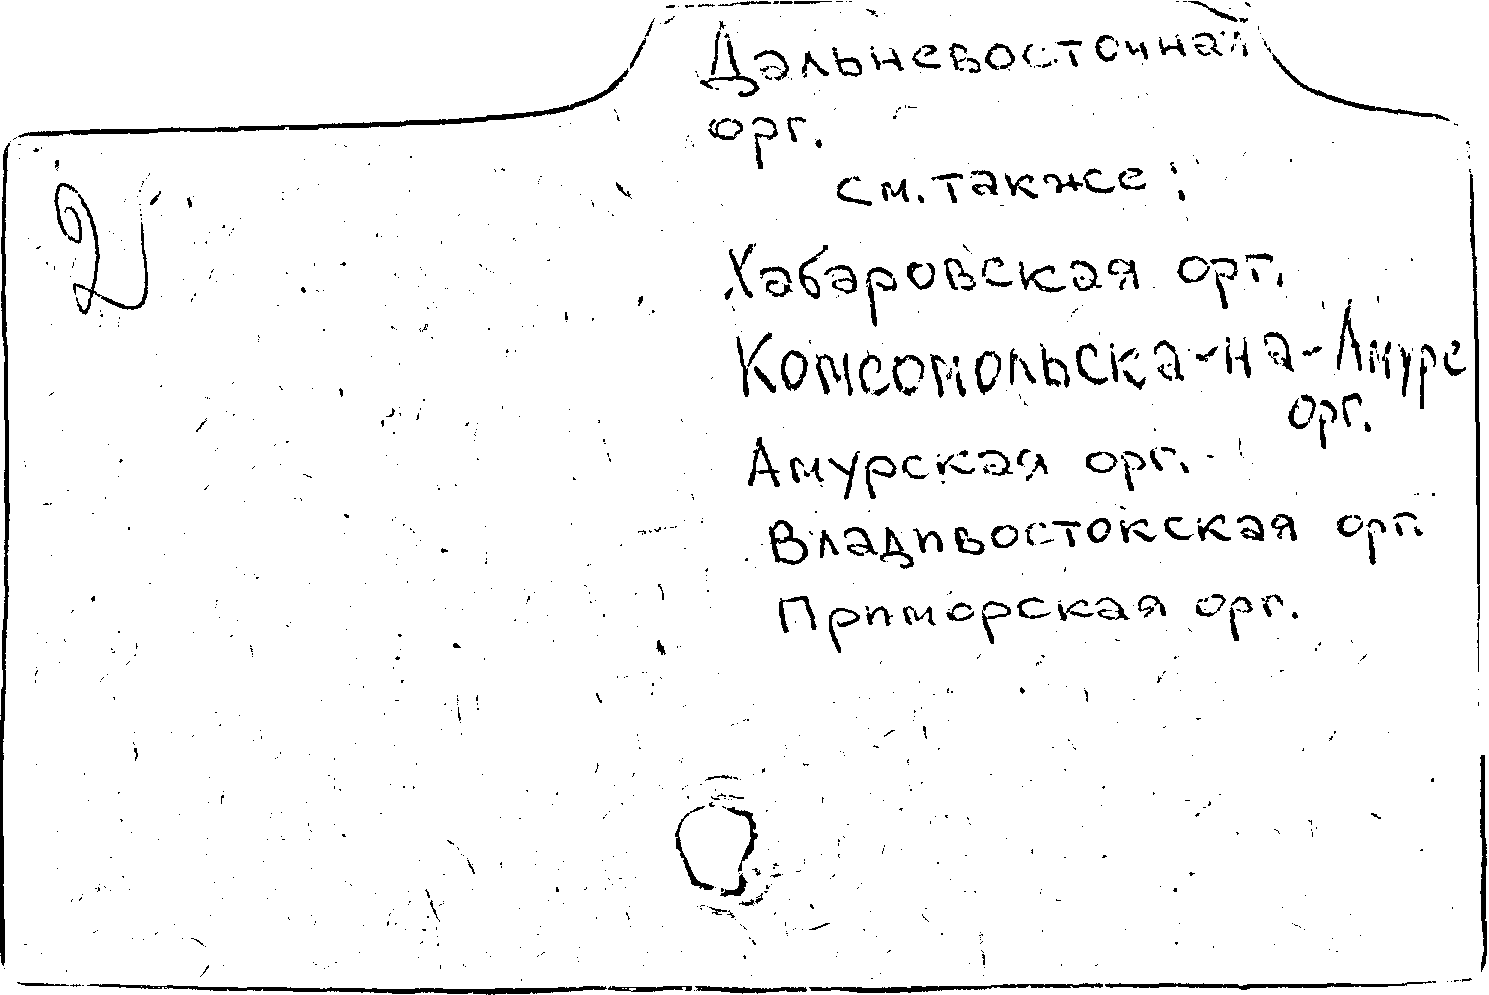 Дальневосточная
орг.
см. также:
Хабаровская орг.
Комсомольска-на-Амуре
орг.
Амурская орг.
Владивостокская орг.
Приморская орг.